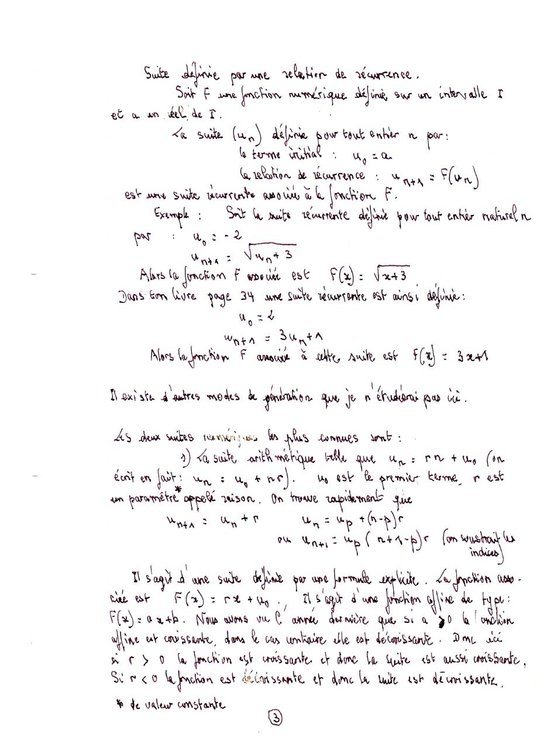 Suite définie par une relation de récurrence.
Soit F une fonction numérique définie sur un intervalle I
et a un réel de I.
La suite (un) définie pour tout entier n par:
le terme initial : u0 = a
la relation de récurrence : un+1 = F(un)
est une suite récurrente associée à la fonction F.
Exemple : Soit la suite récurrente définie pour tout entier naturel n
par : u0 = -2
un+1 = √(un+3)
Alors la fonction F associée est F(x) = √(x+3)
Dans ton livre page 34 une suite récurrente est ainsi définie:
u0 = 2
un+1 = 3un+1
Alors la fonction F associée à cette suite est F(x) = 3x+1
Il existe d'autres modes de génération que je n'étudierai pas ici.
Les deux suites numériques les plus connues sont :
1) La suite arithmétique telle que un = rn + u0 (on
écrit en fait: un = u0 + nr). u0 est le premier terme, r est
un paramètre* appelé raison. On trouve rapidement que
un+1 = un + r un = up + (n-p)r
ou un+1 = up (n+1-p)r (on soustrait les
indices)
Il s'agit d'une suite définie par une formule explicite. La fonction asso-
ciée est F(x) = rx + u0. Il s'agit d'une fonction affine de type:
F(x) = ax+b. Nous avons vu l'année dernière que si a > 0 la fonction
affine est croissante, dans le cas contraire elle est décroissante. Donc ici
si r > 0 la fonction est croissante et donc la suite est aussi croissante.
Si r < 0 la fonction est décroissante et donc la suite est décroissante.
* de valeur constante
3